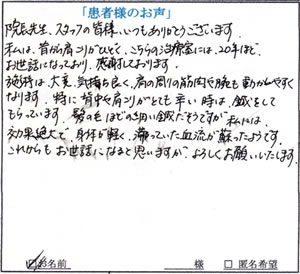 「患者様のお声」
院長先生、スタッフの皆様、いつもありがとうございます。
私は、昔から肩こりがひどく、こちらの治療室には、20年ほど、
お世話になっており、感謝しております。
施術は、大変、気持ち良く、肩の周りの筋肉や腕も動かしやすく
なります。特に背中や肩こりがとても辛い時は、鍼をして
もらっています。髪の毛ほどの細い鍼だそうですが私には、
効果絶大で、身体が軽く、滞っていた血流が蘇ったようです。
これからもお世話になると思いますが、よろしくお願いいたします。
お名前 様 □ 匿名希望